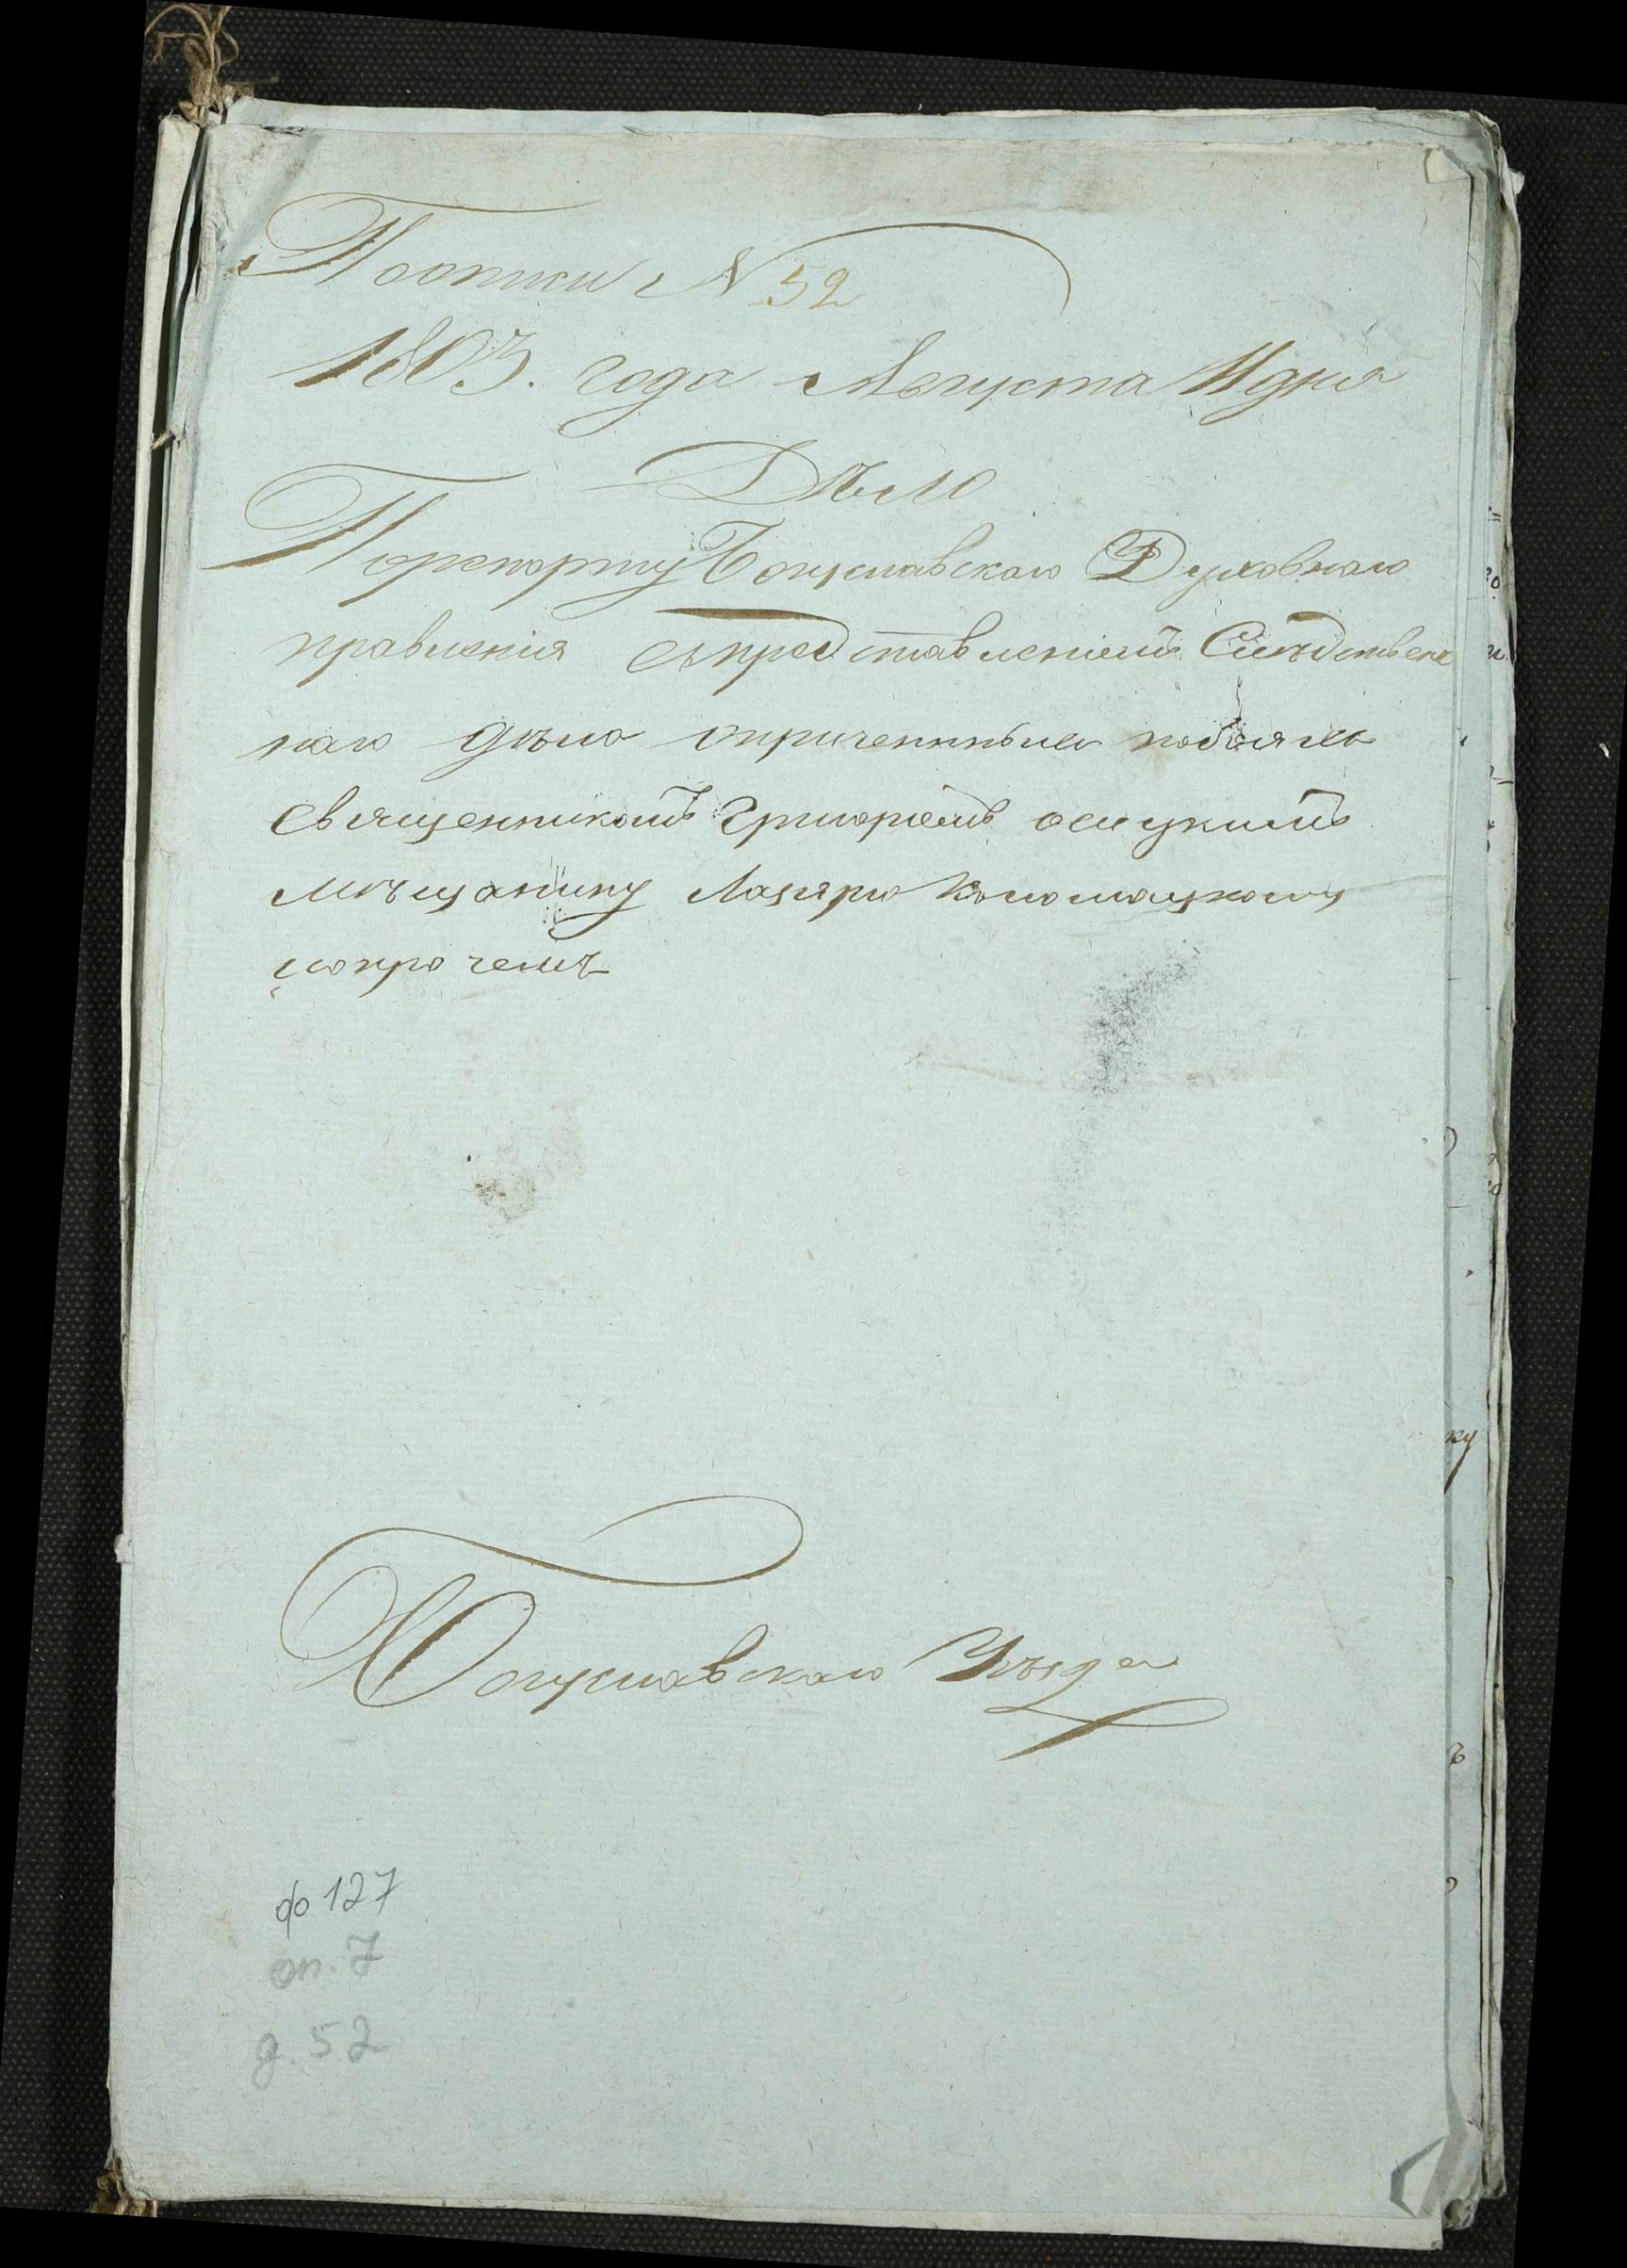 Поописи N 52
1803. года Августа 11 дня
Дѣло
Порепорту Богуславскаго Духовнаго
правления спредставлениемъ Слѣдствен
наго дѣла опричененныхъ побояхъ
священникомъ Григориемъ
мѣщанину Лазарю
ио прочемъ
Богуславскаго Уѣзда
ф 127
оп. 7
д. 52